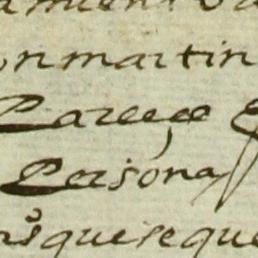 on martin
Pareçe
Persona
que se que